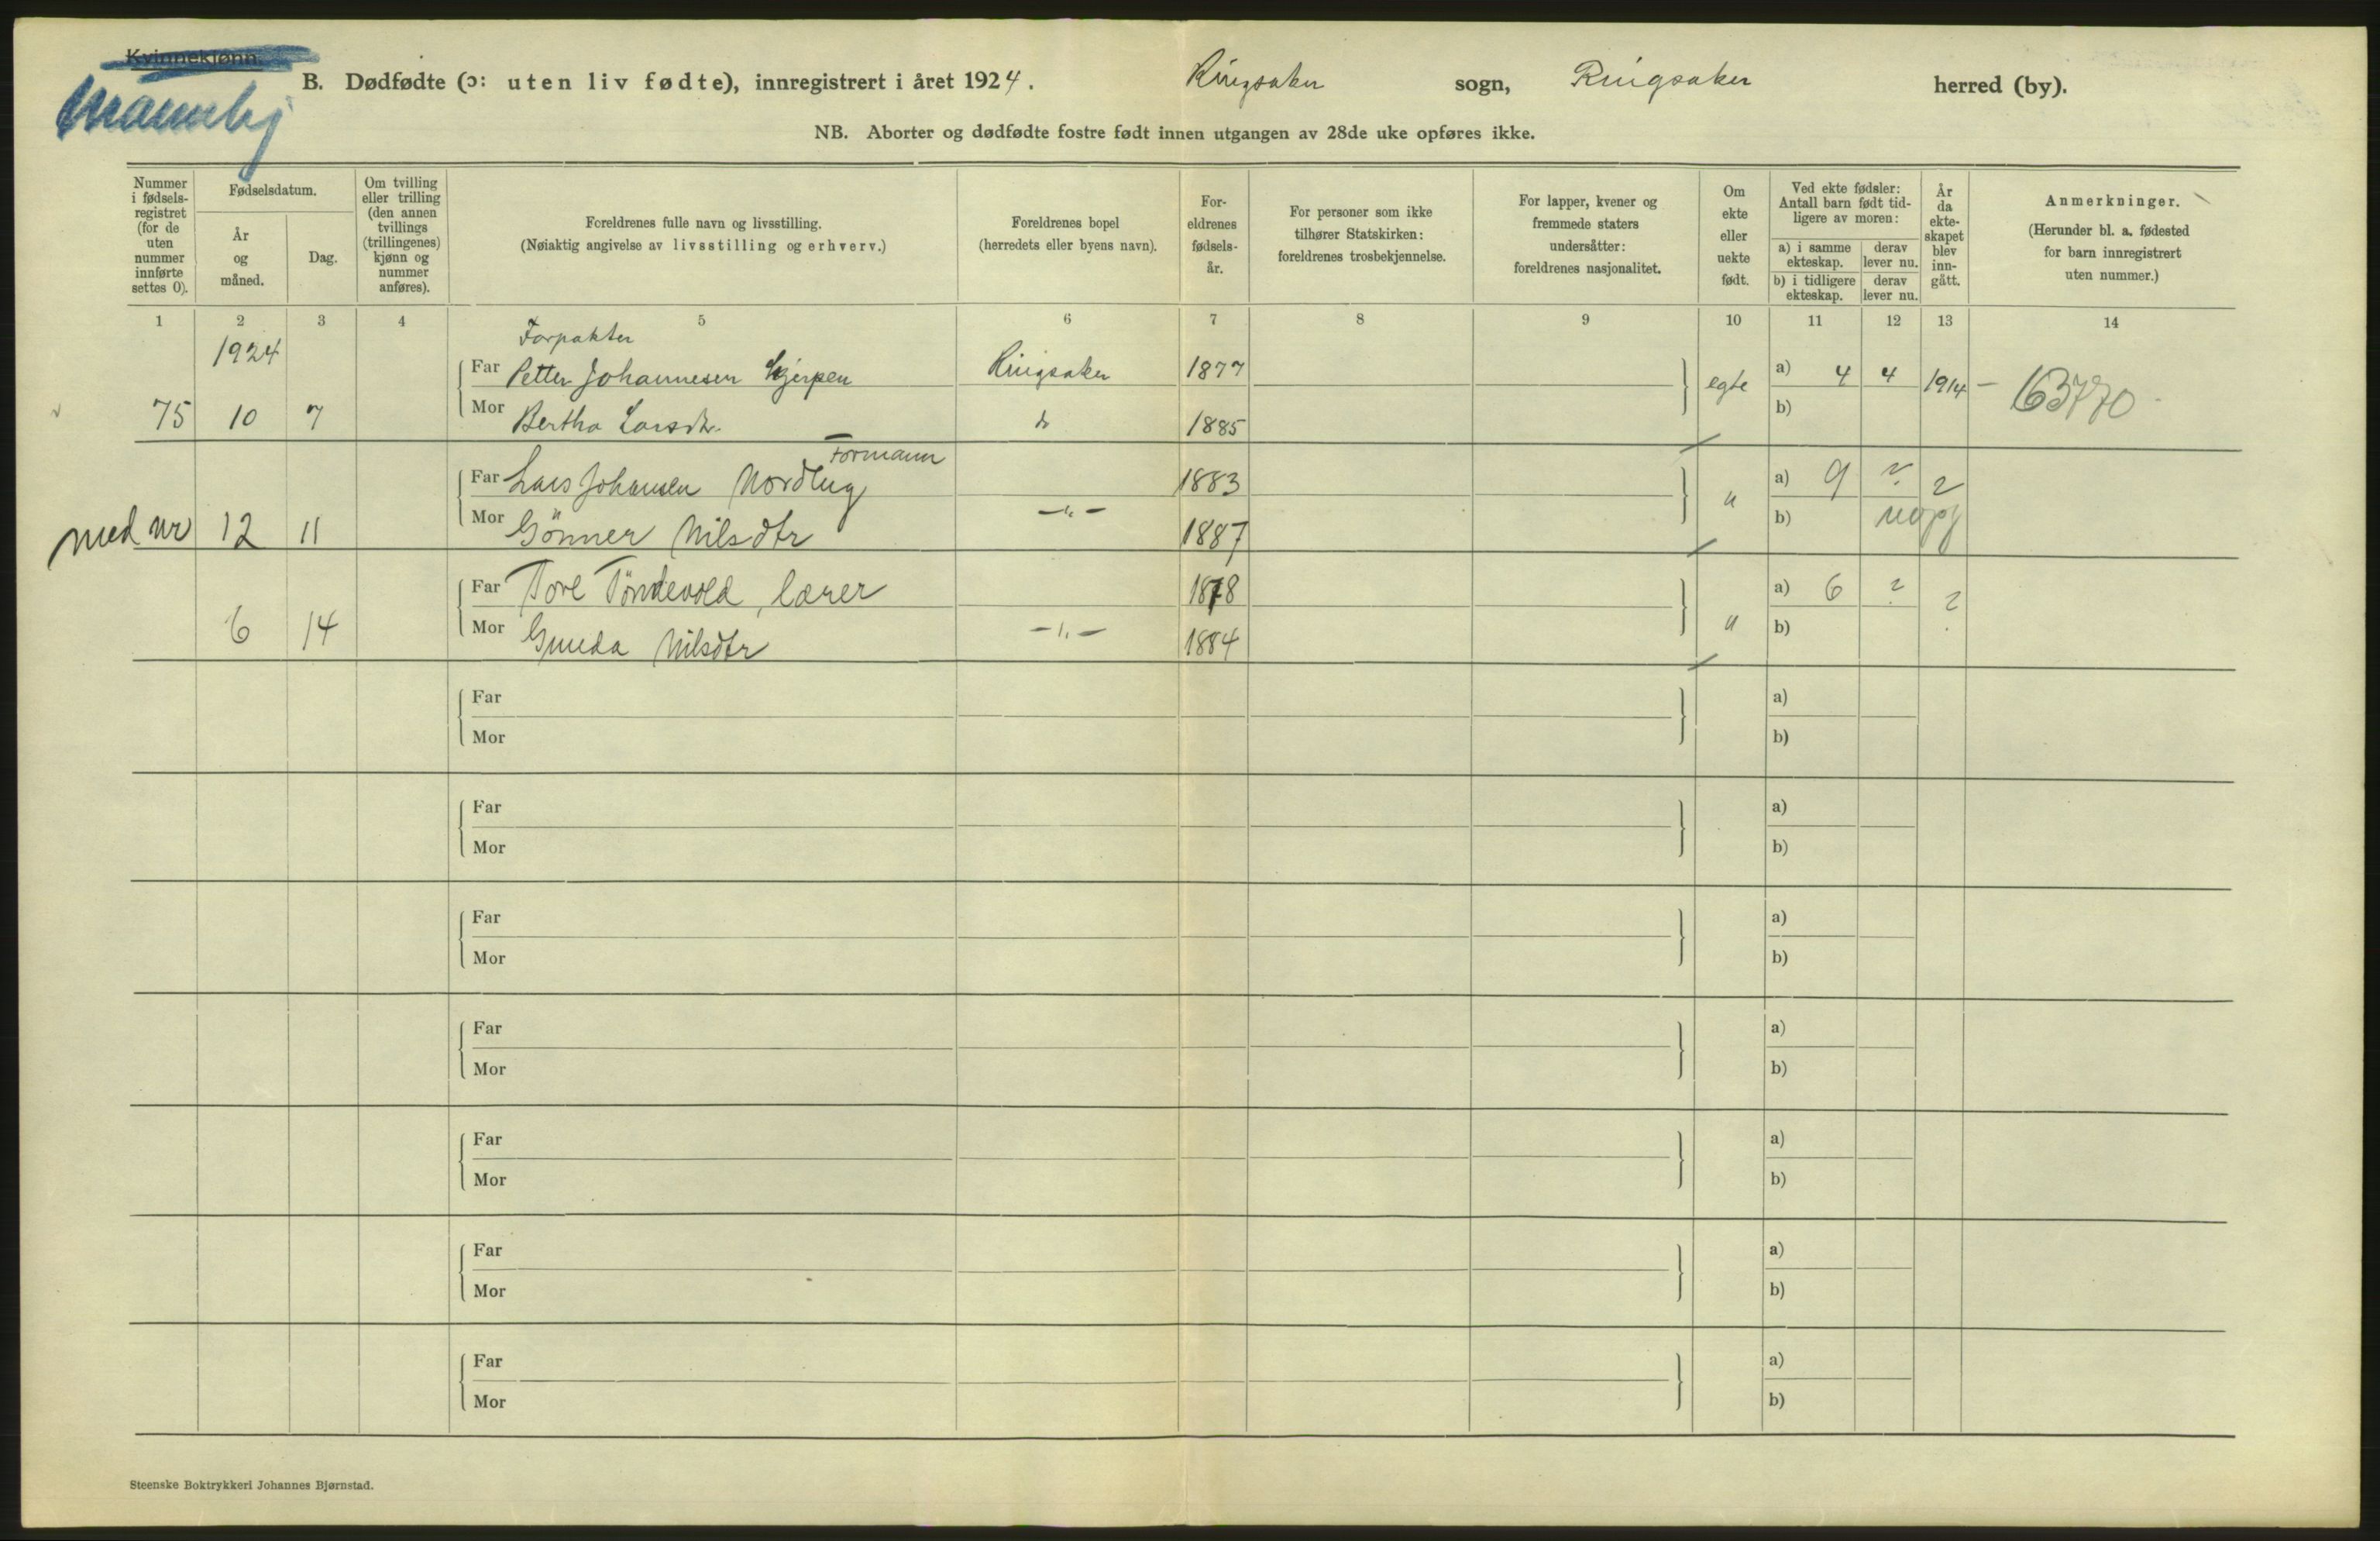 Kvinnekjønn.
B. Dødfødte (ɔ: uten liv fødte), innregistrert i året 1924. Ringsaker sogn, Ringsaker herred (by).
Mannkj
NB. Aborter og dødfødte fostre født innen utgangen av 28de uke opføres ikke.
Nummer i fødsels-registret (for de uten nummer innførte settes 0).
Fødselsdatum.
År og måned.
Dag.
Om tvilling eller trilling (den annen tvillings (trillingenes) kjønn og nummer anføres).
Foreldrenes fulle navn og livsstilling.
(Nøiaktig angivelse av livsstilling og erhverv.)
Foreldrenes bopel
(herredets eller byens navn).
For-eldrenes fødsels-år.
For personer som ikke tilhører Statskirken: foreldrenes trosbekjennelse.
For lapper, kvener og fremmede staters undersåtter: foreldrenes nasjonalitet.
Om ekte eller uekte født.
Ved ekte fødsler: Antall barn født tid-ligere av moren:
a) i samme ekteskap.
derav lever nu.
b) i tidligere ekteskap.
derav lever nu.
År da ekte-skapet blev inn-gått.
Anmerkninger.
(Herunder bl. a. fødested for barn innregistrert uten nummer.)
1 2 3 4 5 6 7 8 9 10 11 12 13 14
1924 Forpakter
Far Petter Johannesen Skjerpen Ringsaker 1877 egte a) 4 4 1914 – 163770
75 10 7 Mor Bertha Larsdtr. do 1885 b)
Formann
Far Lars Johansen Nordlug 1883 " a) 9 ? ?
med nr 12 11 Mor Gönner Nilsdtr –"– 1887 b)
Far Tore Töndevold, lærer 1878 a) 6 ? ?
6 14 Mor Gunda Nilsdtr –"– 1884 " b)
Far a)
Mor b)
Far a)
Mor b)
Far a)
Mor b)
Far a)
Mor b)
Far a)
Mor b)
Far a)
Mor b)
Far a)
Mor b)
Steenske Boktrykkeri Johannes Bjørnstad.